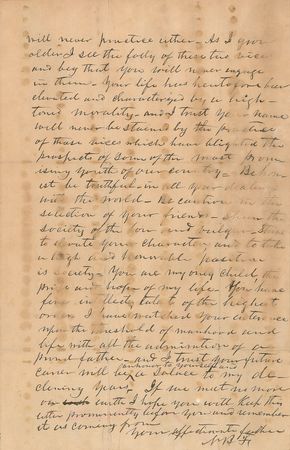 will never practice either. As I grow
older I see the folly of these two vices
and beg that you will never engage
in them. Your life has heretofore been
elevated and characterized by a high-
toned morality. and I trust your name
will never be stained by the practice
of those vices which have blighted the
prospects of some of the most prom
ising youth of our country. Be hon
est be truthful in all your dealings
with the world. Be cautious in the
selection of your friends. Shun the
society of the low and vulgar. Strive
to elevate your character and to take
a high and honorable position
in society. You are my only child the
pride and hope of my life. You have
fine intellect talent of the highest
order. I have watched your entrance
upon the threshold of manhood and
life with all the admiration of a
proud father. and I trust your future
career will be an honor to yourself and
a solace to my de
clining years. If we meet no more
on earth I hope you will keep this
letter prominently before you and remember
it as coming from
Your affectionate father